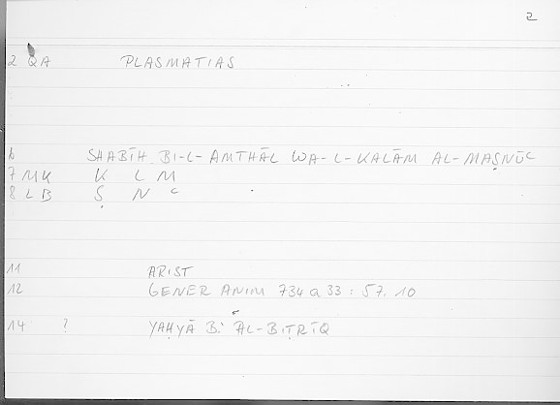 2
2 QA PLASMATIAS
6 SHABĪH BI-L-AMTHĀL WA-L-KALĀM AL-MAṢNŪʿ
7 MK K L M
8 LB Ṣ N ʿ
11 ARIST
12 GENER ANIM 734 a 33 : 57.10
14 ? YAḤYĀ B. AL-BIṬRĪQ